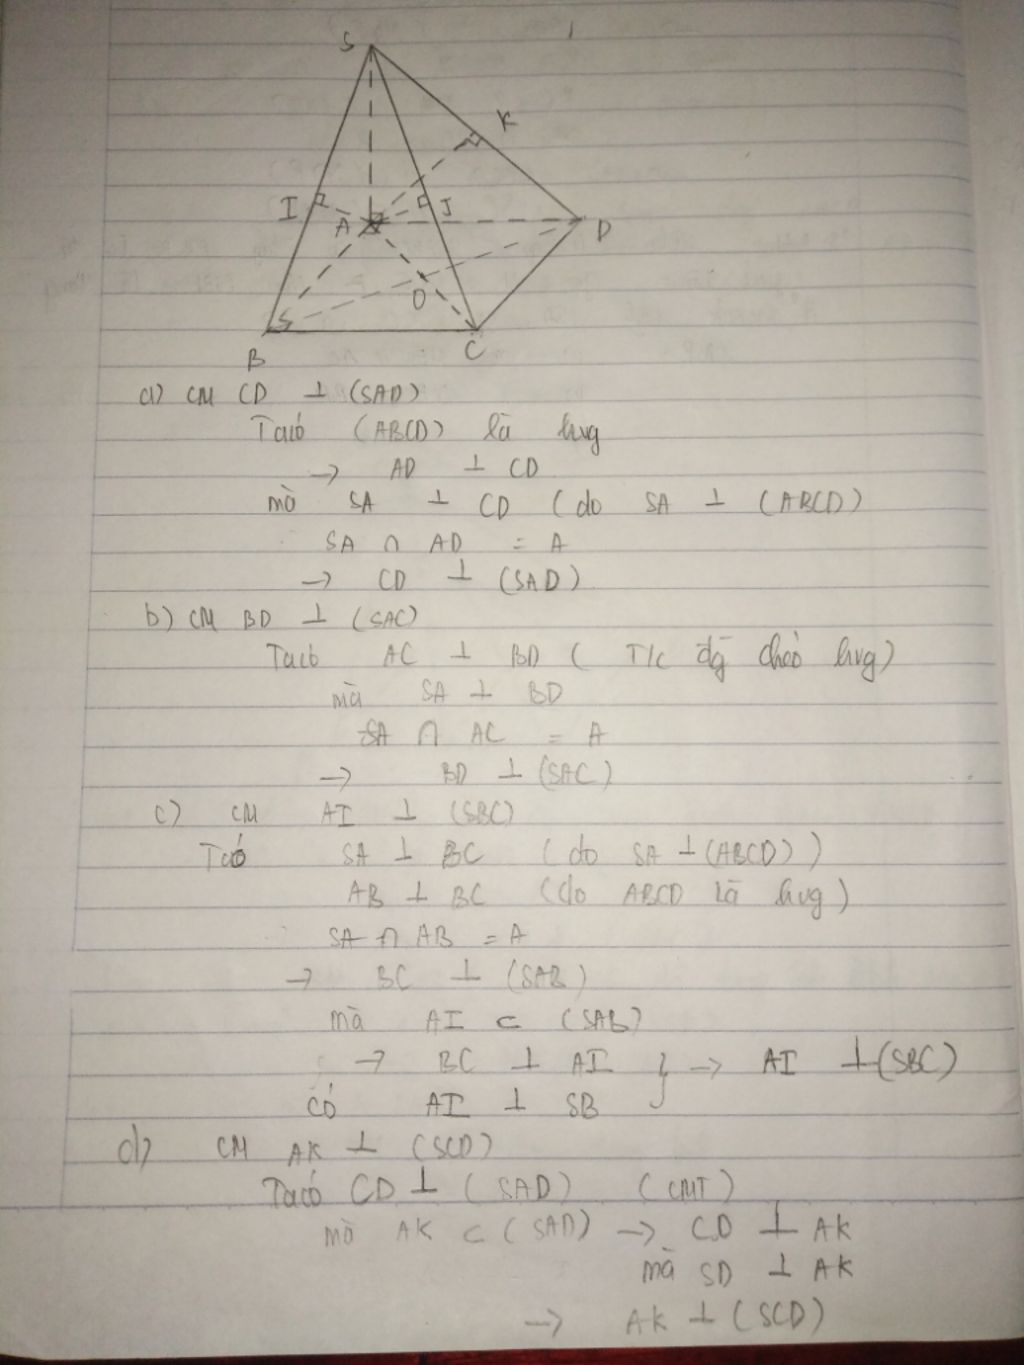 S
K
I
A
J
D
O
B
C
a) CM CD ⊥ (SAD)
Ta có (ABCD) là hvg
→ AD ⊥ CD
mà SA ⊥ CD (do SA ⊥ (ABCD)
SA ∩ AD = A
→ CD ⊥ (SAD)
b) CM BD ⊥ (SAC)
Ta có AC ⊥ BD ( T/c đg chéo hvg)
mà SA ⊥ BD
SA ∩ AC = A
→ BD ⊥ (SAC)
c) CM AI ⊥ (SBC)
Ta có SA ⊥ BC (do SA ⊥ (ABCD))
AB ⊥ BC (do ABCD là hvg)
SA ∩ AB = A
→ BC ⊥ (SAB)
mà AI ⊂ (SAB)
→ BC ⊥ AI } → AI ⊥ (SBC)
có AI ⊥ SB
d) CM AK ⊥ (SCD)
Ta có CD ⊥ (SAD) (CMT)
mà AK ⊂ (SAD) → CD ⊥ AK
mà SD ⊥ AK
→ AK ⊥ (SCD)